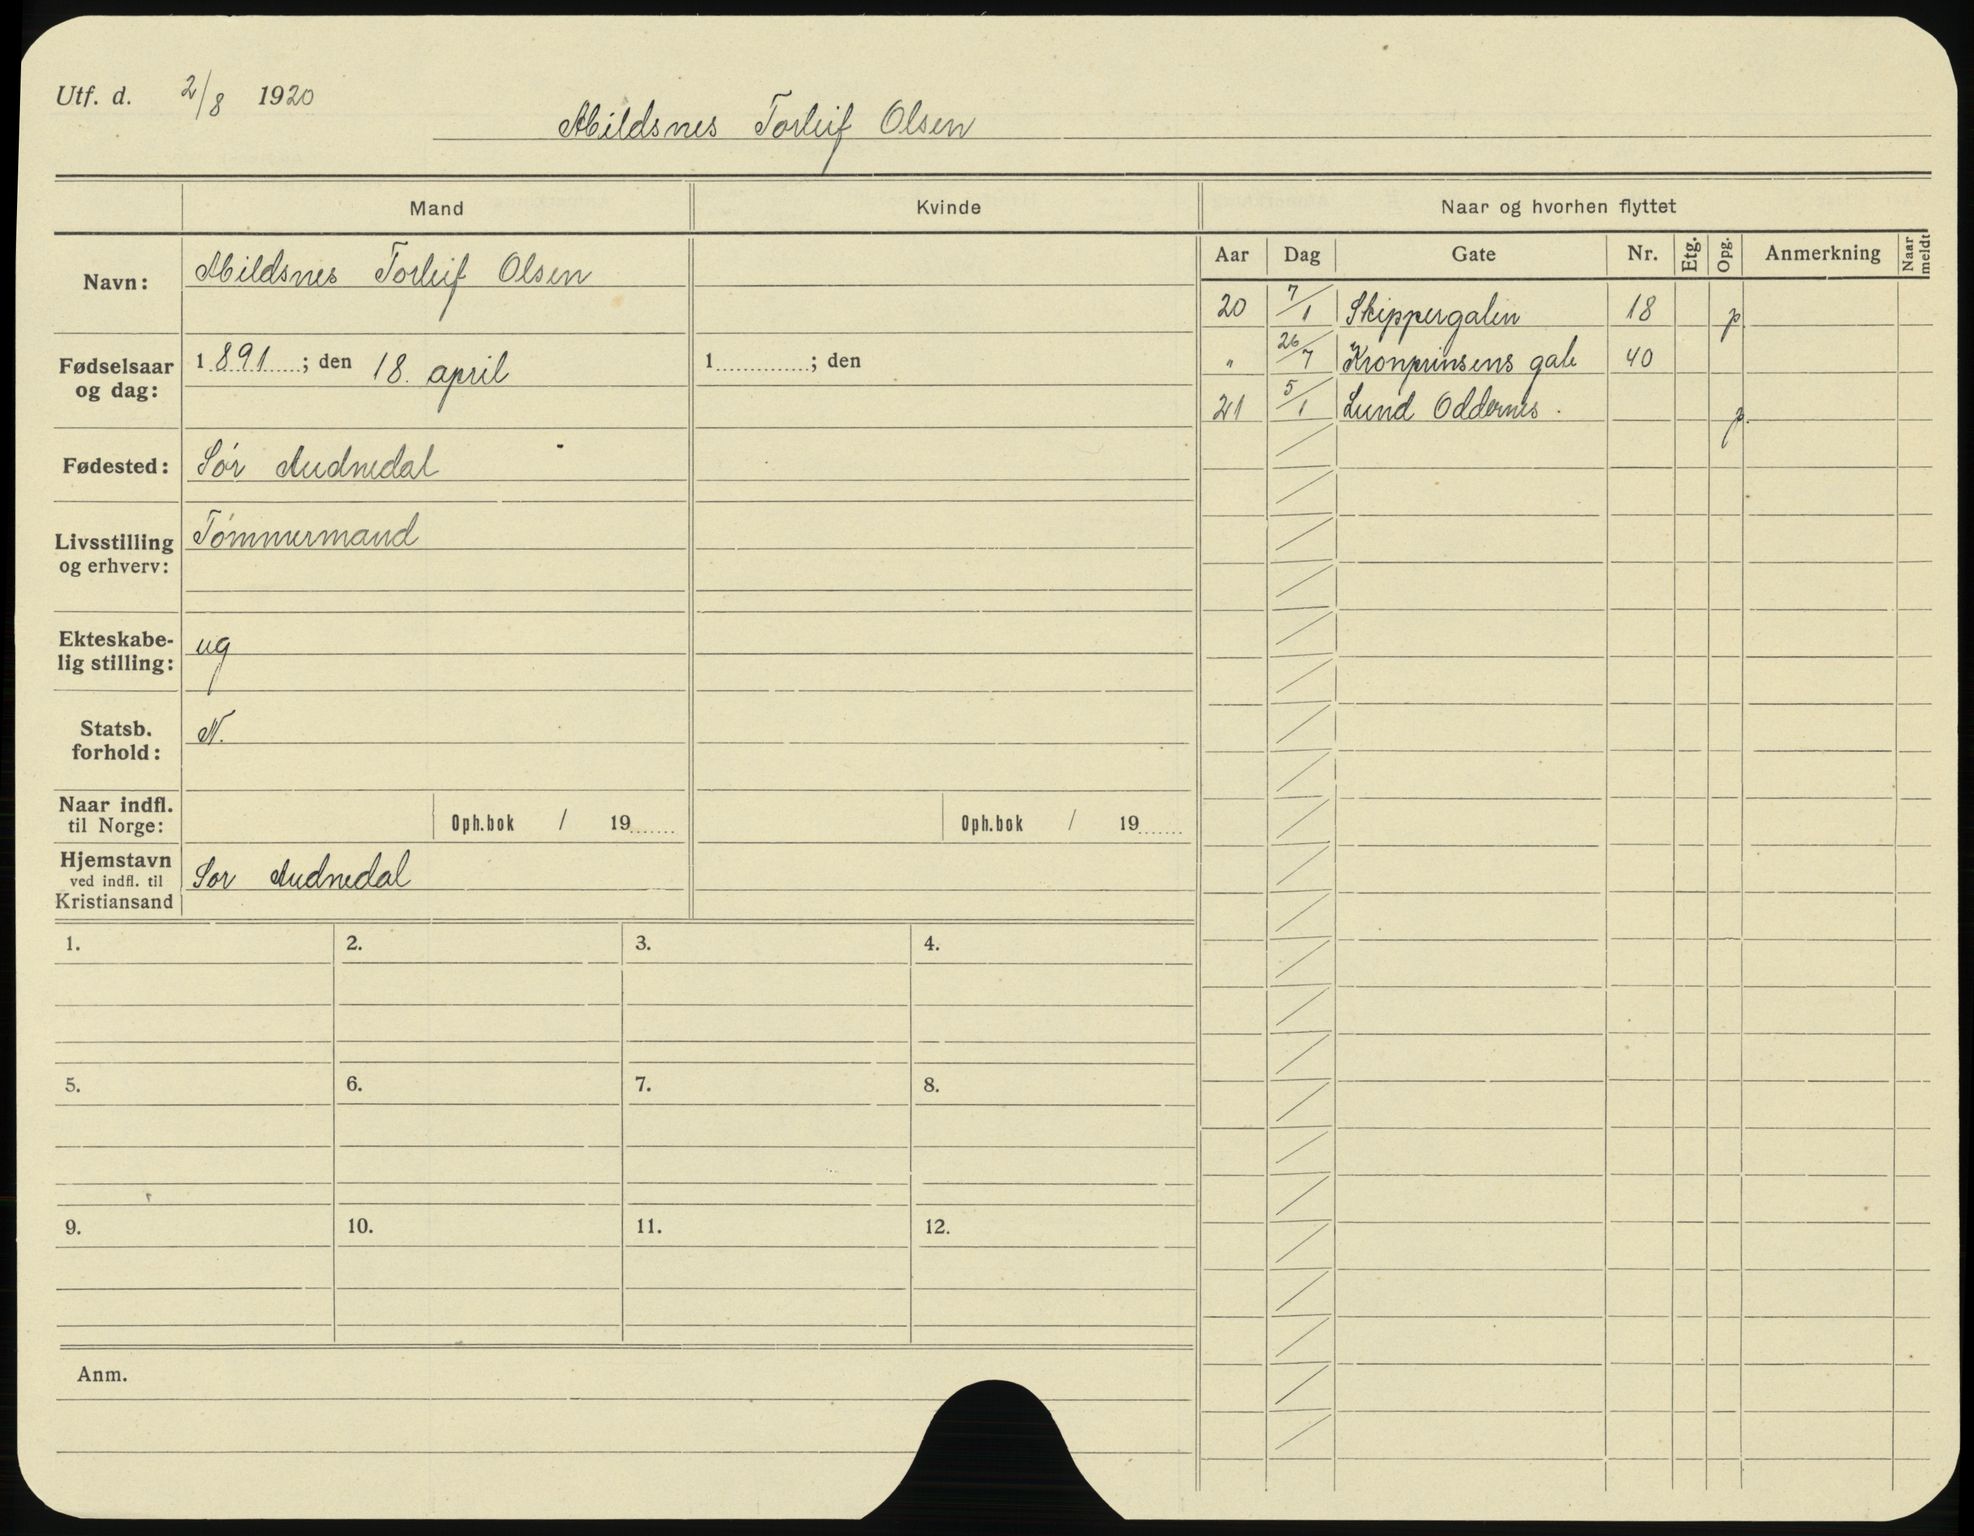 Utf. d. 2/8 1920
Mildsnes Torleif Olsen
Mand Kvinde Naar og hvorhen flyttet
Aar Dag Gate Nr. Etg. Opg. Anmerkning Naar meldt
Navn: Mildsnes Torleif Olsen
20 7/1 Skippergaten 18 p
Fødselsaar 1891; den 18. april 1; den
og dag:
" 26/7 Kronprinsens gate 40
21 5/1 Lund Oddernes. p.
Fødested: Sór Audnedal
Livsstilling Tómmermand
og erhverv:
Ekteskabe-
lig stilling: ug
Statsb.
forhold: N.
Naar indfl.
til Norge: Oph.bok / 19 Oph.bok / 19
Hjemstavn
ved indfl. til
Kristiansand Sor Audnedal
1. 2. 3. 4.
5. 6. 7. 8.
9. 10. 11. 12.
Anm.